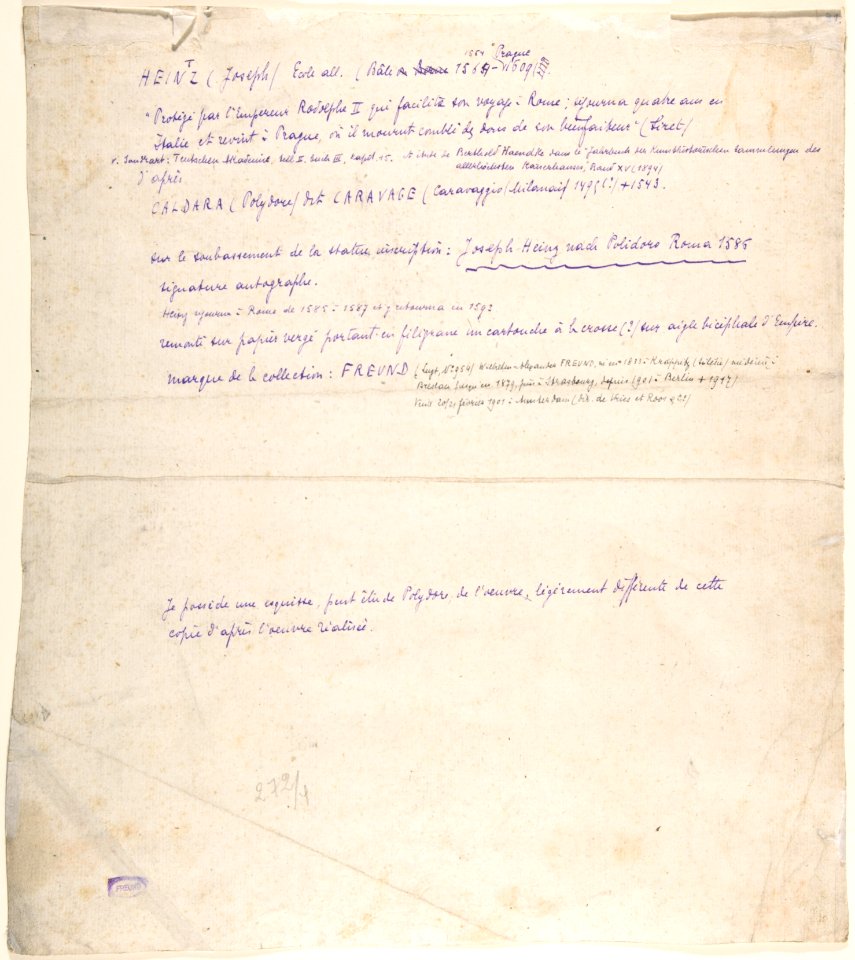 1564 Prague
HEINTZ (Joseph) Ecole all. (Bâle 1564 - 1609).
"Protégé par l'Empereur Rodolphe II qui facilita son voyage à Rome; séjourna quatre ans en
Italie et revint à Prague, où il mourut comblé des dons de son bienfaiteur" (Siret)
v. Sandrart: Teutschen Akademie, II. III, kapel. 15. et étude de Berthold Haendke dans le "Jahrbuch der Kunsthistorischen Sammlungen des
allerhöchsten Kaiserhauses, Band XV (1894)
D'après
CALDARA (Polydore) dit CARAVAGE (Caravaggio (Milanais) 1495 (?) + 1543.
sur le soubassement de la statue, inscription: Joseph Heinz nach Polidoro Roma 1586
signature autographe.
Heinz séjourna à Rome de 1585 à 1587 et y retourna en 1592
remonté sur papier vergé portant en filigrane un cartouche à la crosse (?) sur aigle bicéphale d'Empire.
marque de la collection: FREUND (Lugt, N° 954) Wilhelm-Alexander FREUND, né en 1833 à Krappitz (Silésie) médecin à
Breslau jusqu'en 1879, puis à Strasbourg, depuis 1901 à Berlin + 1917)
Vente 20/21 février 1901 à Amsterdam (dir. de Vries et Roos)
Je possède une esquisse, peut être de Polydore, de l'oeuvre, légèrement différente de cette
copie d'après l'oeuvre réalisée.
272/
FREUND